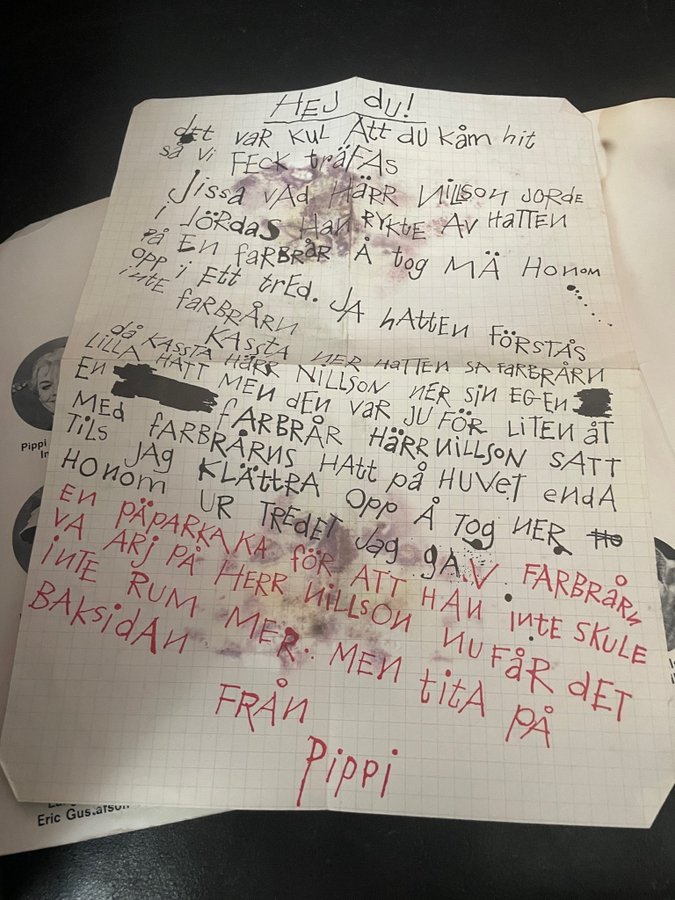 HEJ du!
dET VAR KUL ATT du KåM hit
så vi FECK tRÄFAS
Jissa VAd HÄRR NillsoN JORdE
i JÖRdAS HAN RYKTE AV HATTEN
På EN FARBRåR Å tog MÄ HONOM
OPP i ETT tREd. JA hAttEN FÖRSTåS
iNtE FARBRåRN
då KASSTA HÄRR NILLSON NER siN EGEN
KASSTA NER HATTEN SA FARBRåRN
LILLA HATT MEN dEN VAR JU FÖR LITEN åT
EN FARBRåR HÄRR NillsoN SATT
MEd FARBRåRNS HAtt på HUVET ENdA
TilS JAG KLÄTTRA OPP Å TOg NER
HONOM UR TREdET JAG gAV FARBRåRN
EN PÄPARKAKA FÖR ATT HAN iNtE SKULE
VA ARJ PÅ HERR NillsoN NU FåR dET
iNTE RUM MER. MEN titA På
BAKSidAN
FRÅN
Pippi
Pippi
Eric Gustafson